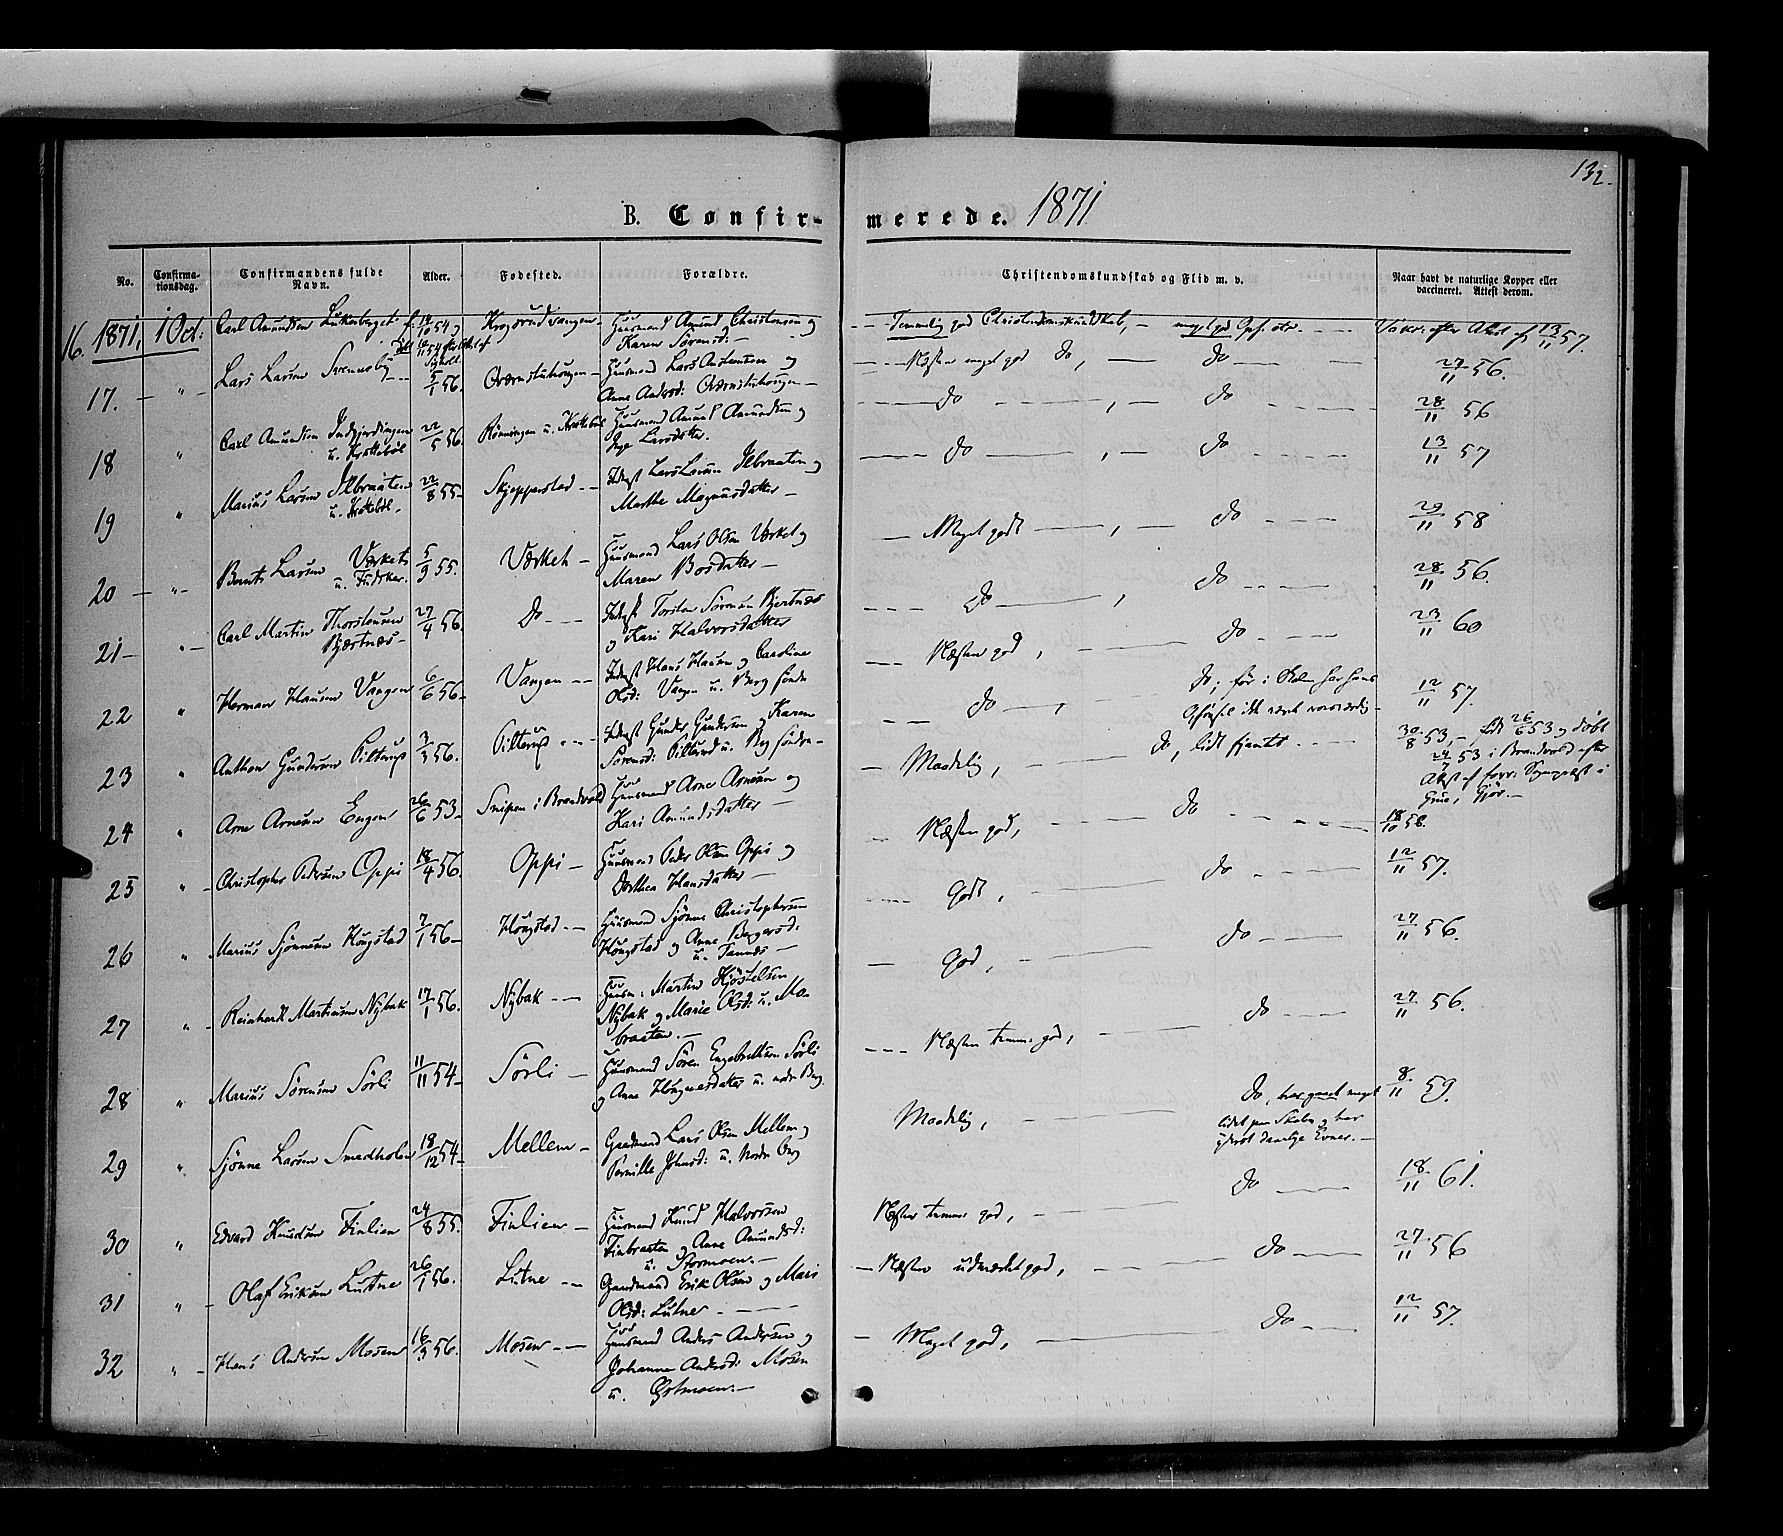 132.
B. Confirmerede. 1871
No. Confirmationsdag. Confirmandens fulde Navn. Alder. Fødested. Forældre. Christendomskundskab og Flid m. v. Naar havt de naturlige Kopper eller vaccineret. Attest derom.
16. 1871, 1 Oct. Carl Amundsen f. 54 Krogsrudvangen - Huusmand Amund Christensen og Karen Sørensd: - Temmelig god Christendomskundskab, - meget god Opf. Vakc. efter Attest af 13/11 57.
17. " Lars Larsen 5/1 56. Huusmand Lars og Anne Andersd: Næsten meget god do, - do 27/11 56.
18 " Carl Amundsen 22/5 56. Rønningen u. Huusmand Amund Amundsen og Inge Larsdatter. do, - do 28/11 56
19 " Marius Larsen Ilbraaten 22/8 55 - Skjepperstad - Inderst Lars Larsen Ilbraaten og Marthe Magnusdatter - do, - do 13/11 57
20 - " - Bernt Larsen Værket u. 5/9 55. Værket - Huusmand Lars Olsen Værket og Maren Bosdatter - Meget godt, - do 29/11 58
21 - " - Carl Martin Thorstensen Bjertnæs - 27/4 56. Do - Inderst Torsten Sørensen Bjertnæs og Kari Halvorsdatter do, do 28/11 56.
22 " Herman Hansen Vangen 6/6 56 - Vangen - Inderst Hans Hansen og Caroline Olsd: Vangen u. Berg søndre Næsten god, - do 23/11 60
23 " Anthon Gundersen Pilterud 3/3 56. Pilterud - Inderst Gunder Gundersen og Karen Sørensd: Pilterud u. Berg søndre - do, - do; før i Skolen har hans Opførsel ikke været 12/11 57.
24 " Arne Arnesen Engen 26/6 53 - Snipen i Brandvold Huusmand Arne Arnesen og Kari Amundsdatter - Maadelig, do, lidt fjantet - 30/8 53, - født 26/6 53 og døbt 24/7 53 i Brandvold efter Attest af forr: Sognepræst i Grue, Gjør. -
25 " - Christopher Pedersen Oppi 18/4 56. Oppi - Huusmand Peder Olsen Oppi og Dorthea Hansdatter - Næsten god, do 18/10 56.
26 " Marius Sjønnesen Haugstad 7/1 56 - Haugstad - Huusmand Sjønne Christophersen Haugstad og Anne Bergersd: u. - godt, do 12/11 57.
27 " - Reinhardt Martinsen Nybak 17/1 56. Nybak - Huusm: Martin Nybak og Marie Olsd: u. Mobraaten. - god, - do 27/11 56.
28 " Marius Sørensen Sørli 11/11 54 - Sørli - Huusmand Søren Engebretsen Sørli og Anne u. nedre Berg. Næsten temm: god, do 27/11 56.
29 " Sjønne Larsen Smedholen 18/12 54 - Mellem - Gaardmand Lars Olsen Mellem og Pernille Johnsd: u. Nordre Berg Maadelig, - do, har gaaet meget lidet paa Skole og har yderst daarlige Evner. - 8/11 59.
30 " Edvard Knudsen Finlien 24/8 55. Finlien - Huusmand Knud Halvorsen Finbraaten og Anne Amundsd: u. Stormoen. - Næsten temm: god, - do 18/11 61.
31 " - Olaf Eriksen Lutne 26/1 56. Lutne - Gaardmand Erik Olsen og Mari Olsd: Lutne. - Næsten udmærket god, - do 27/11 56
32 " - Hans Andersen Mosen 16/3 56. Mosen - Huusmand Anders Andersen og Johanne Andersd: Mosen u. Østmoen. - Meget god, - do 12/11 57.